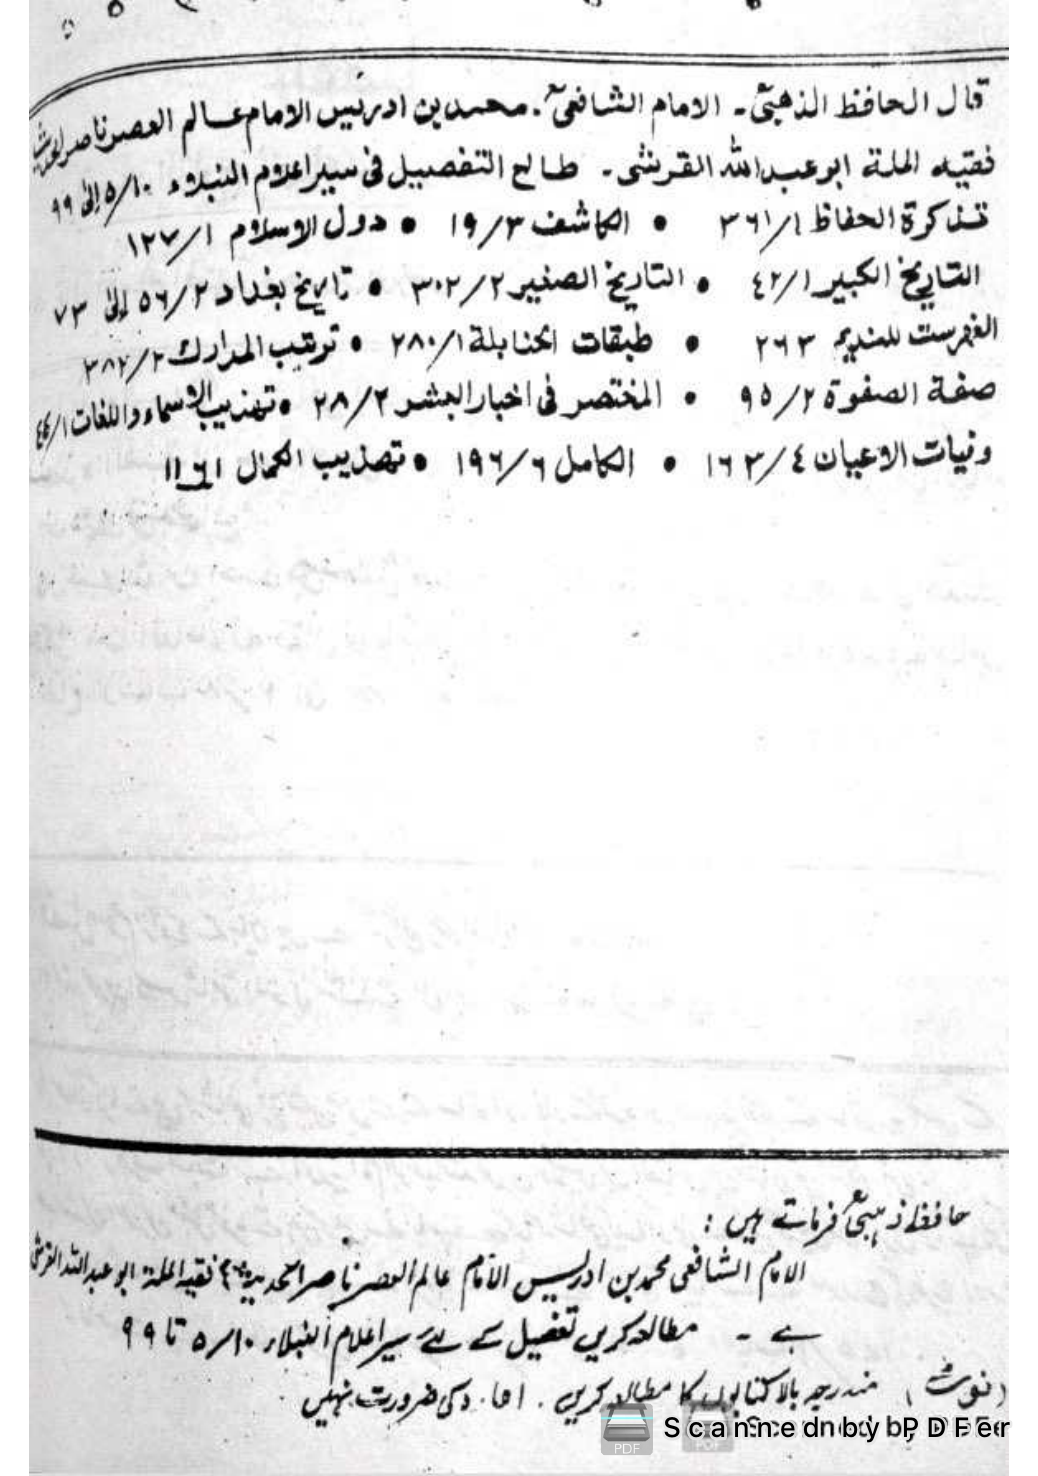 قال الحافظ الذهبیؒ۔ الامام الشافعیؒ۔ محمد بن ادریس الامام عالم العصر ناصر الحدیث
فقیه الملة ابو عبدالله القرشی۔ طالع التفصیل فی سیر اعلام النبلاء ۵/۱۰ إلی ۹۹
تذکرة الحفاظ ۳۶۱/۱ • الکاشف ۱۹/۳ • دول الاسلام ۱۲۷/۱
التاریخ الکبیر ۴۲/۱ • التاریخ الصغیر ۳۰۲/۲ • تاریخ بغداد ۵۶/۲ إلی ۷۳
الفهرست للندیم ۲۶۳ • طبقات الحنابلة ۲۸۰/۱ • ترتیب المدارک ۳۸۲/۲
صفة الصفوة ۹۵/۲ • المختصر فی اخبار البشر ۲۸/۲ • تهذیب الاسماء واللغات ۴۴/۱
وفیات الاعیان ۱۶۳/۴ • الکامل ۱۹۶/۶ • تهذیب الکمال ۱۱۶۱
حافظ ذہبیؒ فرماتے ہیں :
الامام الشافعی محمد بن ادریس الامام عالم العصر ناصر الحدیث فقیه الملة ابو عبدالله القرشی
ہے ۔ مطالعہ کریں تفصیل کے لئے سیر اعلام النبلاء ۵/۱۰ تا ۹۹
(نوٹ) مندرجہ بالا کتابوں کا مطالعہ کریں . کی ضرورت نہیں